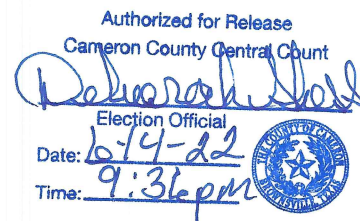 Authorized for Release
Cameron County Central Count
Election Official
Date: 6-14-22
Time: 9:36pm
THE COUNTY OF CAMERON
BROWNSVILLE, TEXAS